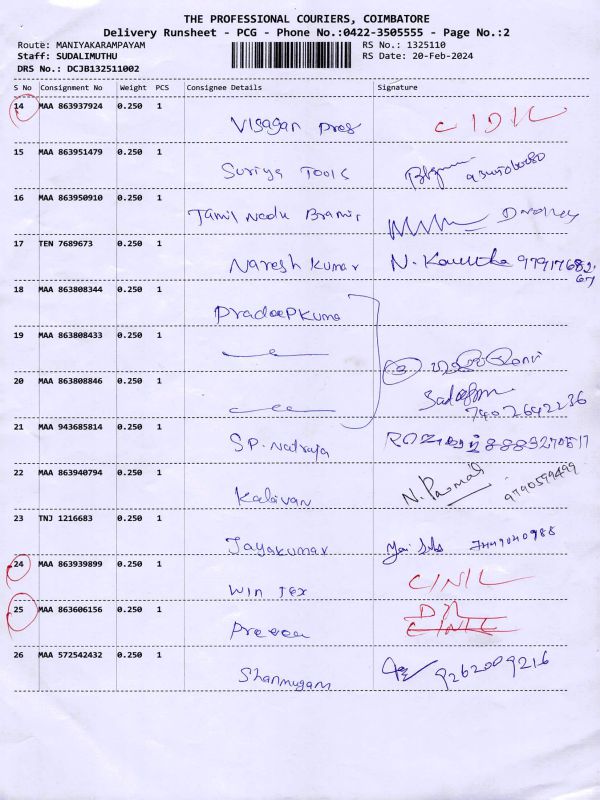 THE PROFESSIONAL COURIERS, COIMBATORE
Delivery Runsheet - PCG - Phone No.:0422-3505555 - Page No.:2
Route: MANIYAKARAMPAYAM RS No.: 1325110
Staff: SUDALIMUTHU RS Date: 20-Feb-2024
DRS No.: DCJB132511002
S No Consignment No Weight PCS Consignee Details Signature
14 MAA 863937924 0.250 1 Visagan Pres
15 MAA 863951479 0.250 1 Suriya Tools
16 MAA 863950910 0.250 1 Tamil Nadu
17 TEN 7689673 0.250 1 Naresh Kumar N. 9791768267
18 MAA 863808344 0.250 1 PradeepKuma
19 MAA 863808433 0.250 1
20 MAA 863808846 0.250 1
7402642236
21 MAA 943685814 0.250 1 S.P. Natraja
22 MAA 863940794 0.250 1 Kalaivan 9790599499
23 TNJ 1216683 0.250 1 Jayakumar
24 MAA 863939899 0.250 1 Win Tex C/N/L
25 MAA 863606156 0.250 1 Praveen C/N/L
26 MAA 572542432 0.250 1 Shanmugam 9262009216